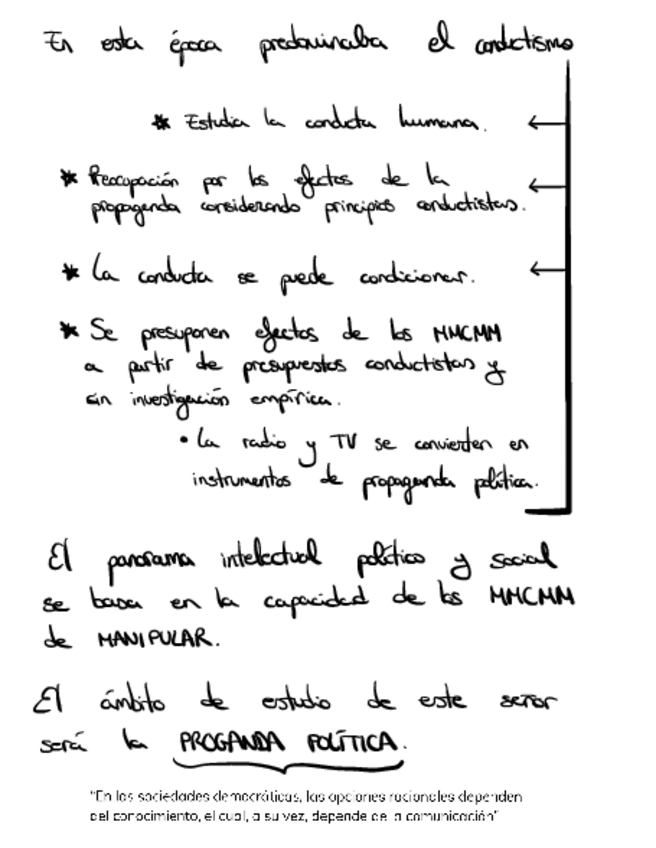 En esta época predominaba el conductismo
* Estudia la conducta humana.
* Preocupación por los efectos de la
propaganda considerando principios conductistas.
* La conducta se puede condicionar.
* Se presuponen efectos de los MMCMM
a partir de presupuestos conductistas y
sin investigación empírica.
• La radio y TV se convierten en
instrumentos de propaganda política.
El panorama intelectual político y social
se basa en la capacidad de los MMCMM
de MANIPULAR.
El ámbito de estudio de este señor
será la PROGANDA POLÍTICA.
"En las sociedades democráticas, las opciones racionales dependen
del conocimiento, el cual, a su vez, depende de la comunicación"